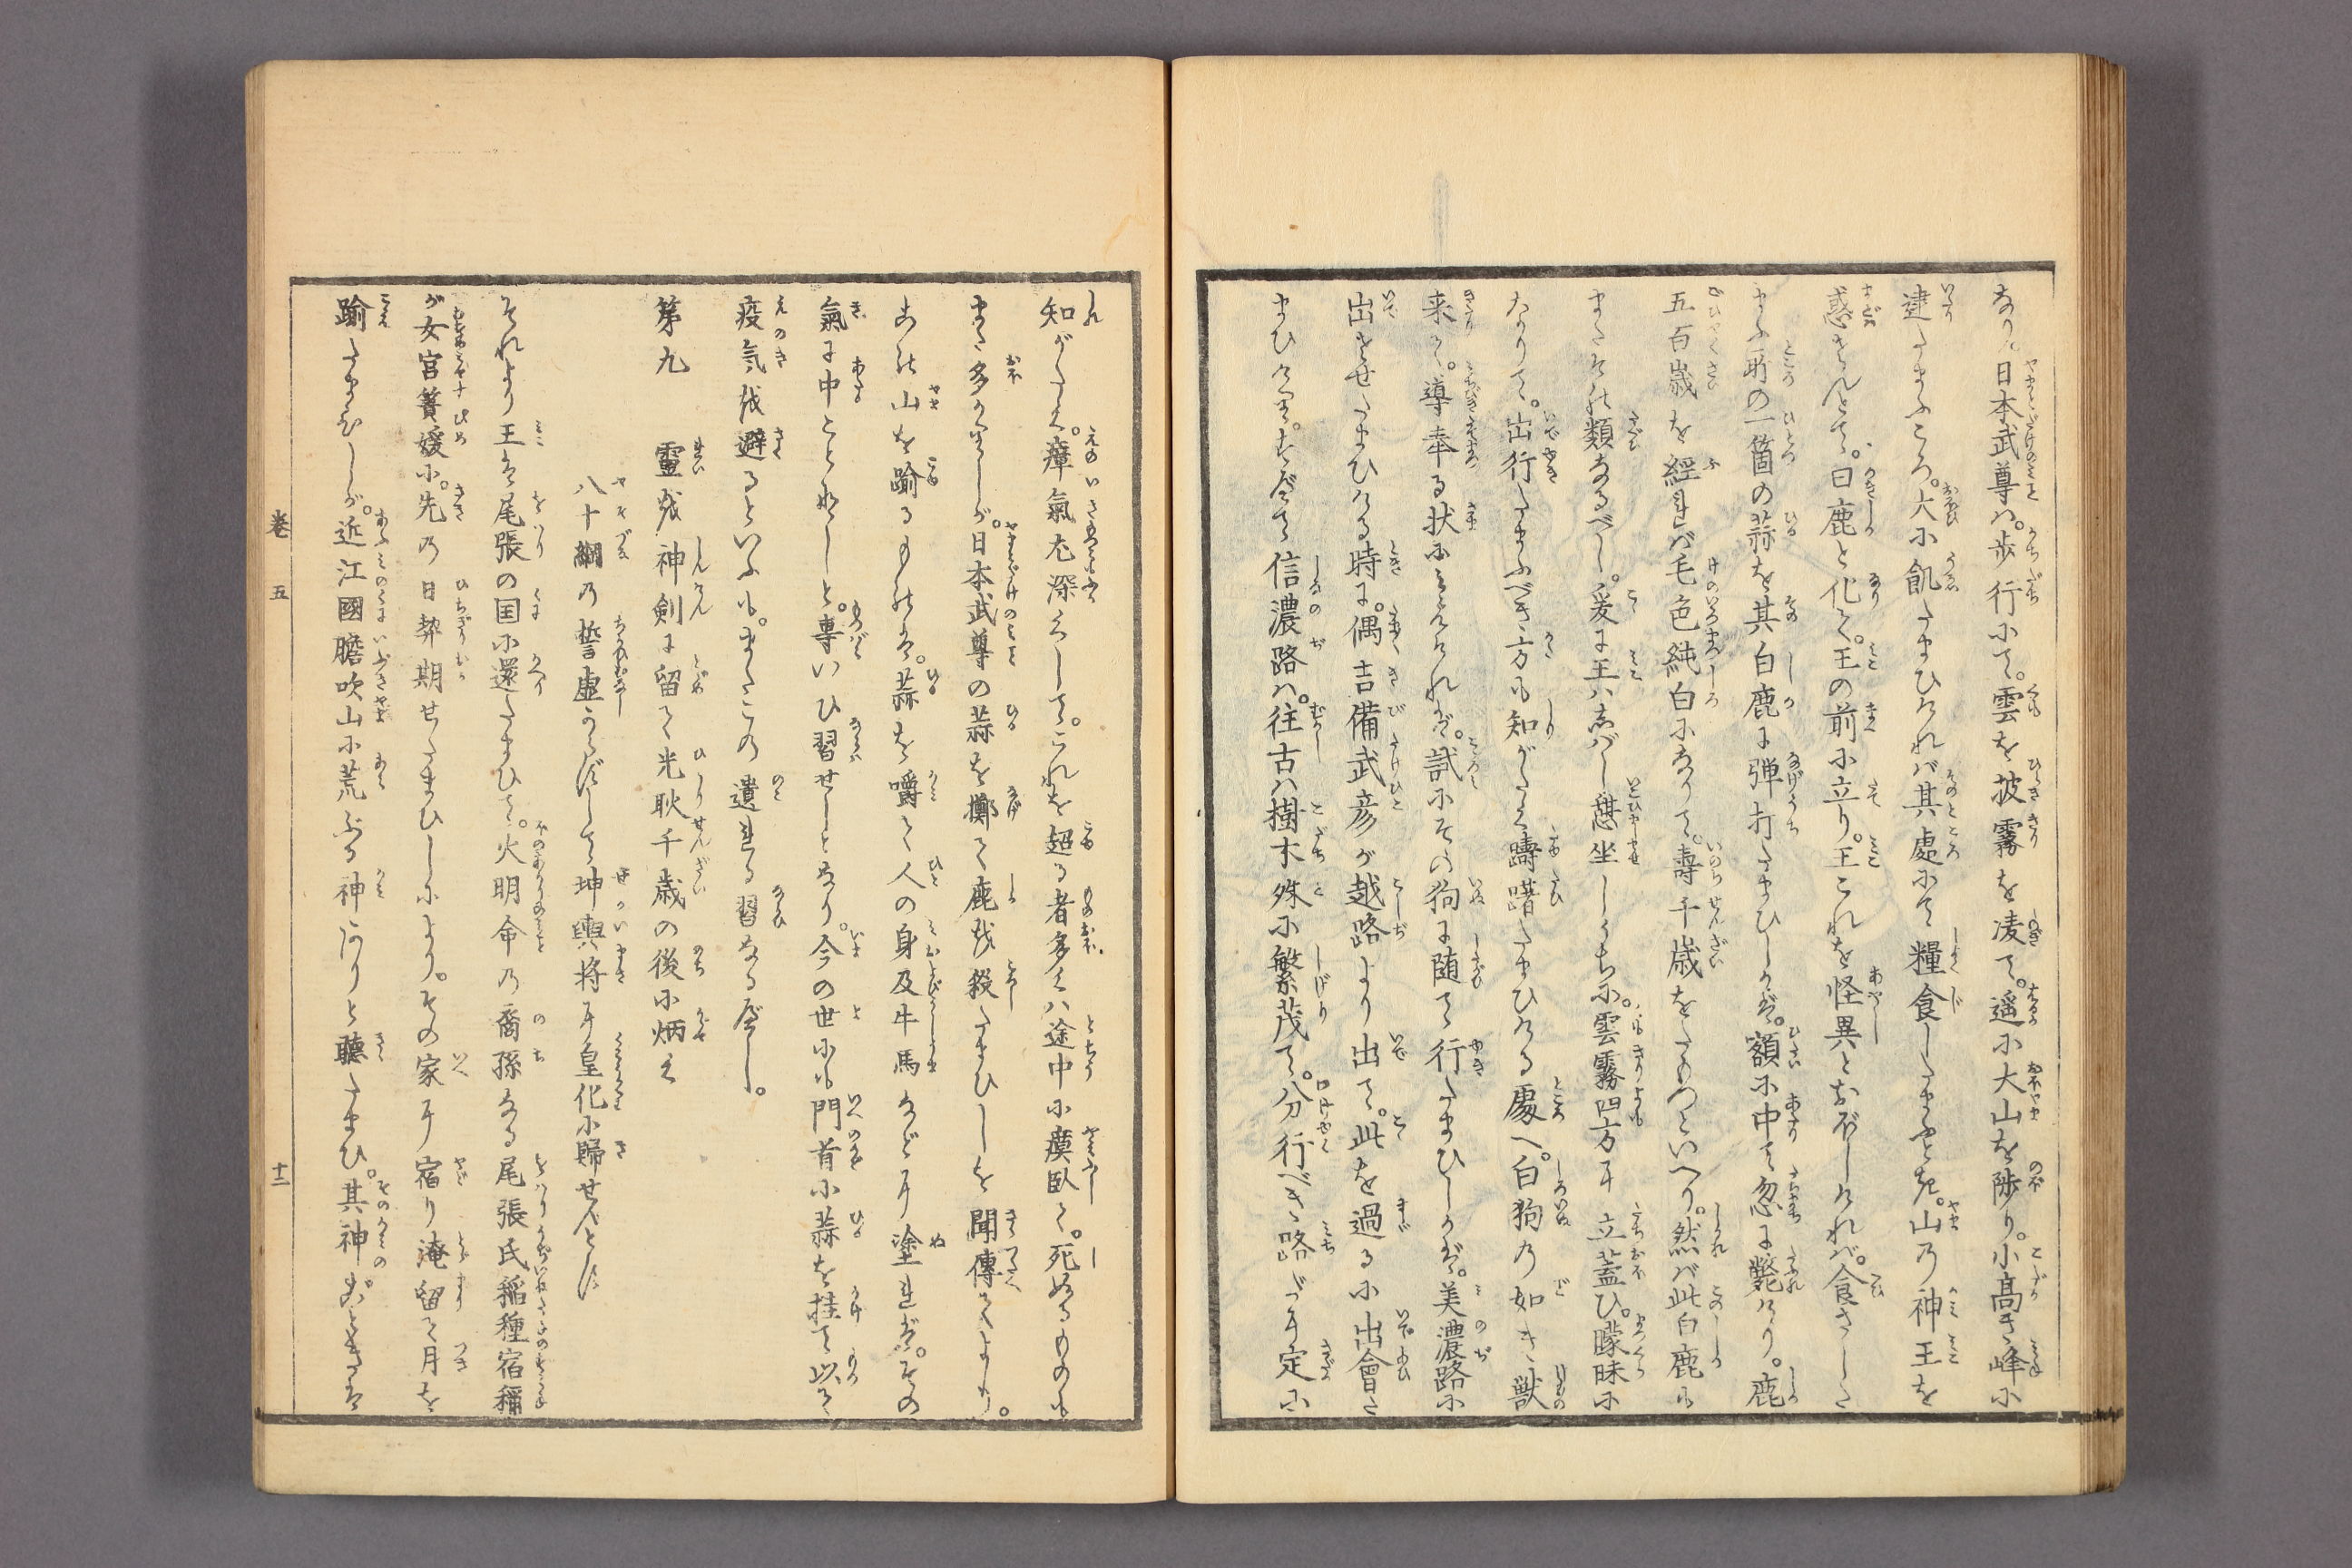 なり。日本武尊ハ。歩行にて。雲を披霧を凌て。遥に大山を陟り。小高き峰に
逮たまふころ。大に飢たまひけれバ其處にて糧食したまふとき。山乃神王を
惑さんとて。白鹿と化て。王の前に立り。王これを怪異とおぼしけれバ。食さした
まふ所の一箇の蒜を其白鹿に弾打たまひしかバ。額に中て忽に斃けり。鹿
五百歳を經れバ毛色純白になりて。壽千歳をたもつといへり。然バ此白鹿も
またその類なるべし。爰に王ハ志バし憇坐しうちに。雲霧四方に立蓋ひ。曚昧に
なりて。出行たまふべき方も知がたく躊躇たまひける處へ。白狗乃如き獣
来て。導奉る状にみえけれバ。試にその狗に随て行たまひしかバ。美濃路に
出させたまひける時に。偶吉備武彦が越路より出て。此を過るに出會さ
まひけり。すべて信濃路ハ。往古ハ樹木殊に繁茂て。分行べき路だに定に
知がたく。瘴氣尤深くして。これを超る者多くハ途中に瘼臥て。死ぬるものも
また多かりしが。日本武尊の蒜を擲て鹿を殺たまひしを聞傳てより。
この山を踰るものは。蒜を嚼て人の身及牛馬などに塗れバ。その
氣に中ことなしと。專いひ習せしとなり。今の世にも門首に蒜を挂て以て
疫気を避るといふも。またこの遺れる習なるべし。
第九　靈を神剣に留て光耿千歳の後に炳く
八十綱乃誓虚からずして坤輿将に皇化に歸せんとす
それより王は尾張の国に還たまひて。火明命乃裔孫なる尾張氏稲種宿祢
が女宮簀媛に。先乃日契期せたまひしにより。その家に宿り淹留て月を
踰たまひしが。近江國膽吹山に荒ぶる神ありと聽たまひ。其神
巻五
十二